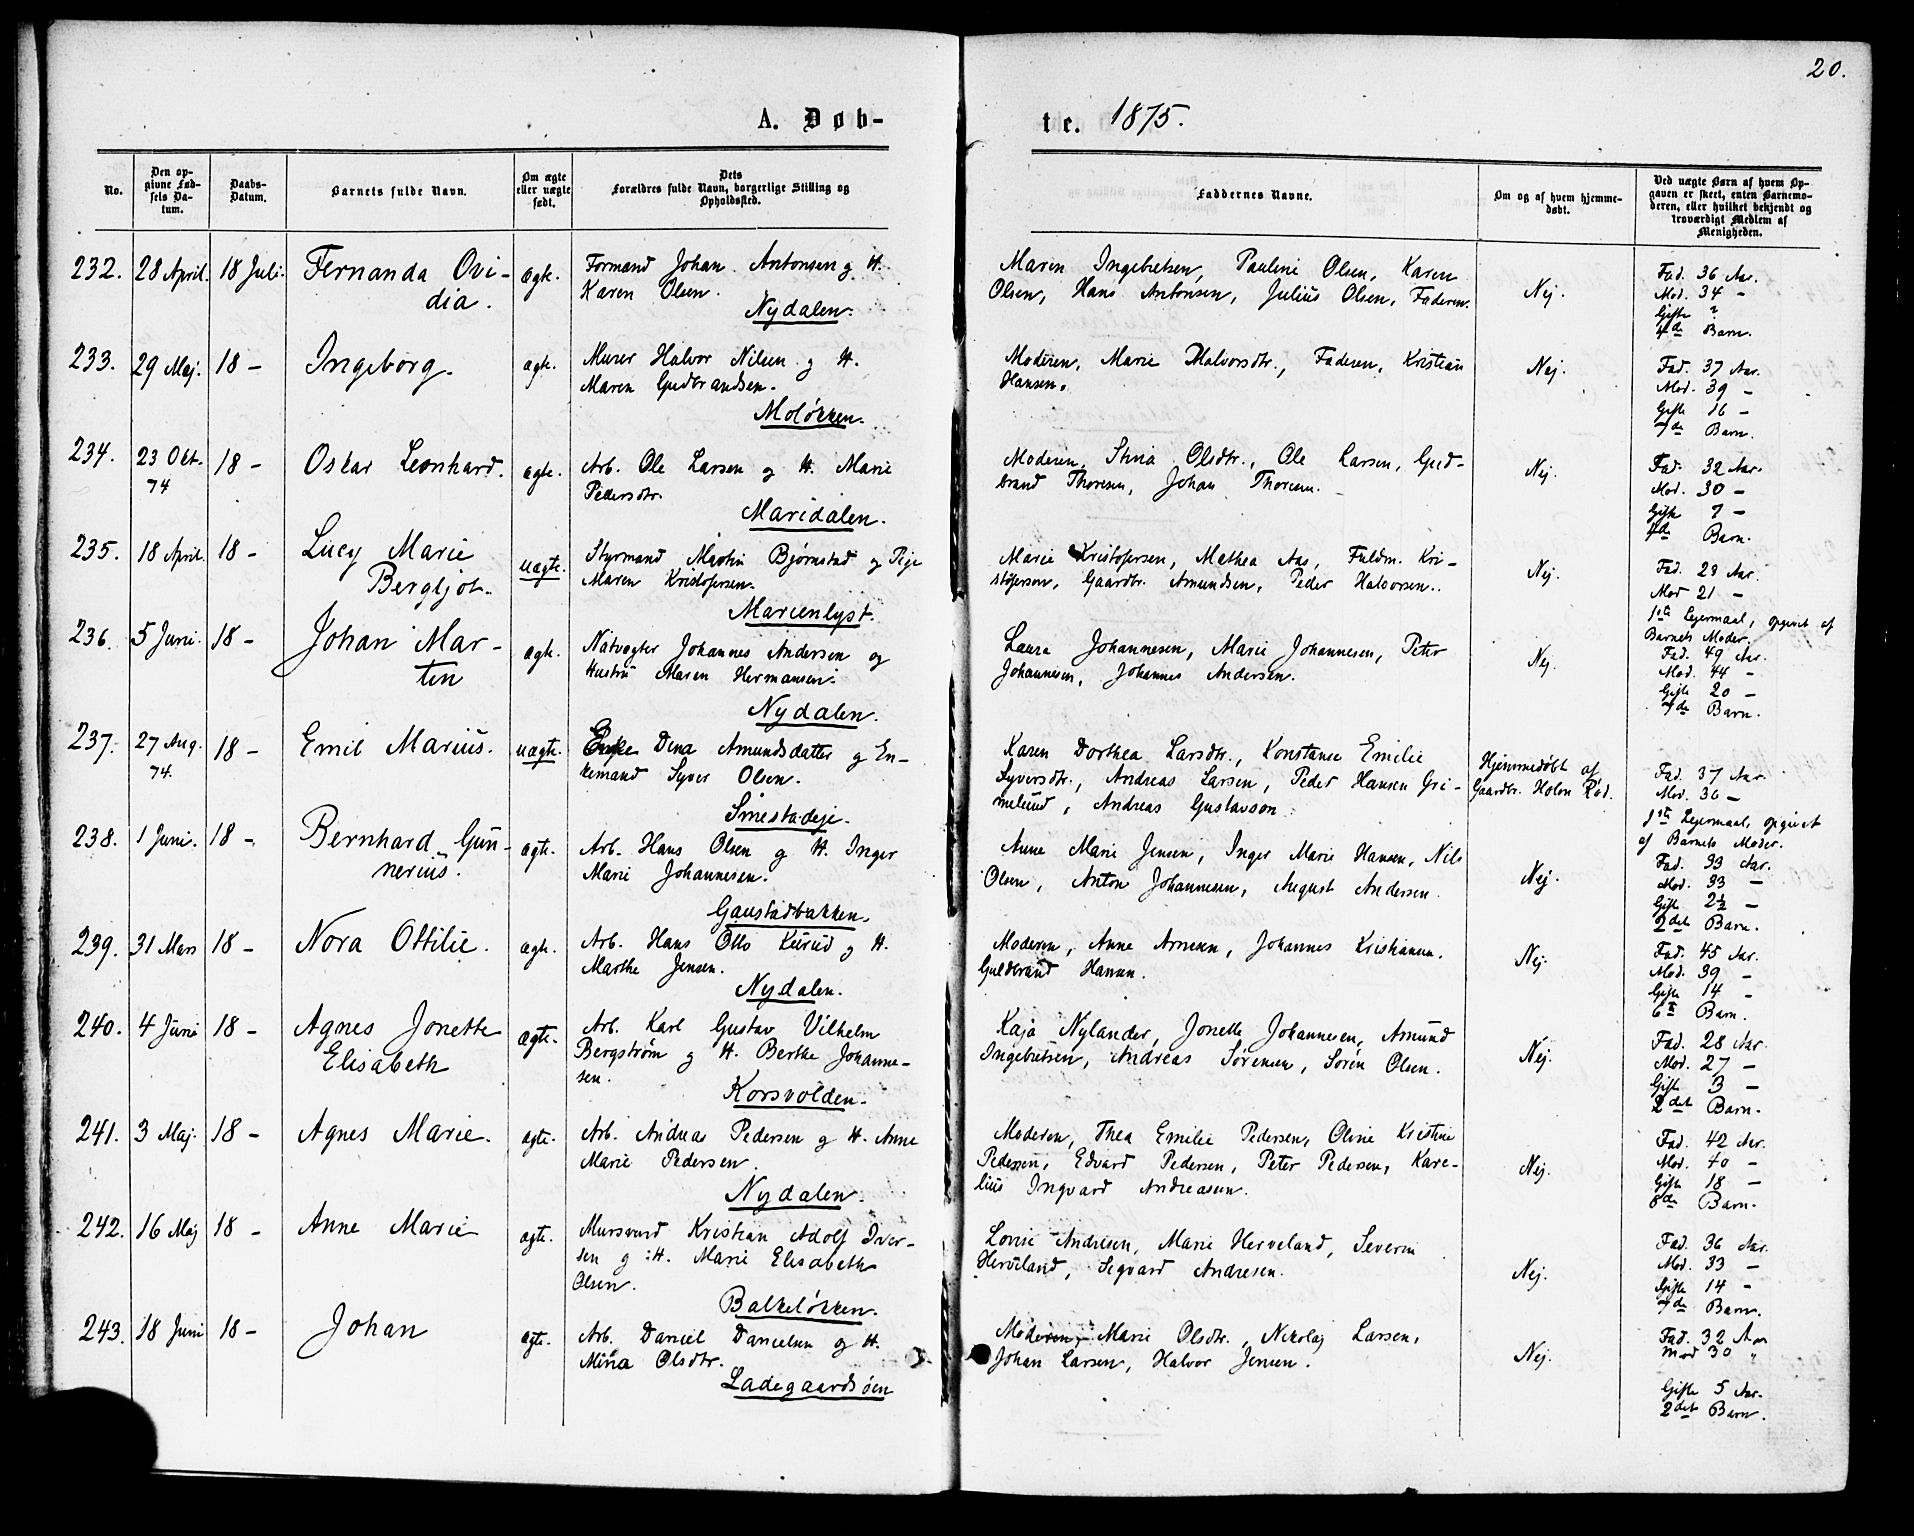 20.
A. Døb-
te. 1875.
No.
Den op-
givne Fød-
sels Da-
tum.
Daabs-
Datum.
Barnets fulde Navn.
Om ægte
eller uægte
født.
Dets
Forældres fulde Navn, borgerlige Stilling og
Opholdssted.
Faddernes Navne.
Om og af hvem hjemme-
døbt.
Ved uægte Børn af hvem Op-
gaven er skeet, enten Barnemo-
deren, eller hvilket bekjendt og
troværdigt Medlem af
Menigheden.
232. 28 April. 18 Juli. Fernanda Ovi-
dia.
ægte.
Formand Johan Antonsen og H.
Karen Olsen.
Nydalen.
Maren Ingebretsen, Pauline Olsen, Karen
Olsen, Hans Antonsen, Julius Olsen, Faderen.
Nej.
Fad. 36 Aar.
Mod. 34 -
Gifte ?
4de Barn.
233. 29 Maj. 18 - Ingeborg.
ægte.
Murer Halvor Nilsen og H.
Maren Gudbrandsen.
Moløkken.
Moderen, Marie Halvorsdtr., Faderen, Kristian
Hansen.
Nej.
Fad. 37 Aar.
Mod. 39 -
Gifte 16 -
7de Barn.
234. 23 Okt. 18 - Oskar Leonhard.
74
ægte.
Arb. Ole Larsen og H. Marie
Pedersdtr.
Maridalen.
Moderen, Olsdtr., Ole Larsen, Gud-
brand Thoresen, Johan Thoresen.
Nej.
Fad. 32 Aar.
Mod. 30 -
Gifte 7 -
4de Barn.
235. 18 April. 18 - Lucy Marie
Bergljot.
uægte.
Styrmand Martin Bjørnstad og Pige
Maren Kristofersen.
Marienlyst.
Marie Kristofersen, Mathea Aas, Fuldm. Kri-
stofersen, Gaardbr. Amundsen, Peder Halvorsen.
Nej.
Fad. 28 Aar.
Mod 21 -
1ste Lejermaal, opgivet af
Barnets Moder.
236. 5 Juni. 18 - Johan Mar-
tin
ægte.
Natvægter Johannes Andersen og
Hustru Maren Hermansen.
Nydalen.
Laura Johannesen, Marie Johannesen, Peter
Johannesen, Johannes Andersen.
Nej.
Fad. 49 Aar.
Mod. 44 -
Gifte 20 -
7de Barn.
237. 27 Aug. 18 - Emil Marius.
74.
uægte.
Enke Dina Amundsdatter og En-
kemand Syver Olsen.
Smestadeje.
Karen Dorthea Larsdtr., Konstanse Emilie
Syversdtr., Andreas Larsen, Peder Hansen Gri-
melund, Andreas Gustavson
Hjemmedøbt af
Gaardbr. Holm Rød.
Fad. 37 Aar.
Mod. 36 -
1ste Lejermaal, opgivet
af Barnets Moder.
238. 1 Juni. 18 - Bernhard Gun-
nerius.
ægte.
Arb. Hans Olsen og H. Inger
Marie Johannesen.
Gaustadbakken.
Anne Marie Jensen, Inger Marie Hansen, Nils
Olsen, Anton Johannesen, August Andersen.
Nej.
Fad. 33 Aar.
Mod. 33 -
Gifte 2½ -
2det Barn.
239. 31 Mars 18 - Nora Ottilie.
ægte.
Arb. Hans Otto Kurud og H.
Marthe Jensen.
Nydalen.
Moderen, Anne Arnesen, Johannes Kristiansen,
Guldbrand Hansen.
Nej.
Fad. 45 Aar.
Mod. 39 -
Gifte 14 -
6te Barn.
240. 4 Juni 18 - Agnes Jonette
Elisabeth
ægte.
Arb. Karl Gustav Vilhelm
Bergstrøm og H. Berthe Johanne-
sen.
Korsvolden.
Kaja Nylander, Jonette Johannesen, Amund
Ingebretsen, Andreas Sørensen, Søren Olsen.
Nej.
Fad. 28 Aar.
Mod. 27 -
Gifte 3 -
2det Barn.
241. 3 Maj. 18 - Agnes Marie.
ægte.
Arb. Andreas Pedersen og H. Anne
Marie Pedersen.
Nydalen.
Moderen, Thea Emilie Pedersen, Oline Kristine
Pedersen, Edvard Pedersen, Peter Pedersen, Kare-
lius Ingvard Andreasen.
Nej.
Fad. 42 Aar.
Mod. 40 -
Gifte 18 -
8de Barn.
242. 16 Maj 18 - Anne Marie
ægte.
Mursvend Kristian Adolf Iver-
sen og H. Marie Elisabeth
Olsen.
Balkeløkken.
Lovise Andresen, Marie Herveland, Severin
Herveland, Segvard Andresen.
Nej.
Fad. 36 Aar.
Mod. 33 -
Gifte 14 -
7de Barn.
243. 18 Juni 18 - Johan
ægte.
Arb. Daniel Danielsen og H.
Mina Olsdtr.
Ladegaardsøen
Moderen, Marie Olsdtr., Nikolaj Larsen,
Johan Larsen, Halvor Jensen.
Nej.
Fad. 32 Aar
Mod 30 "
Gifte 5 Aar.
2det Barn.